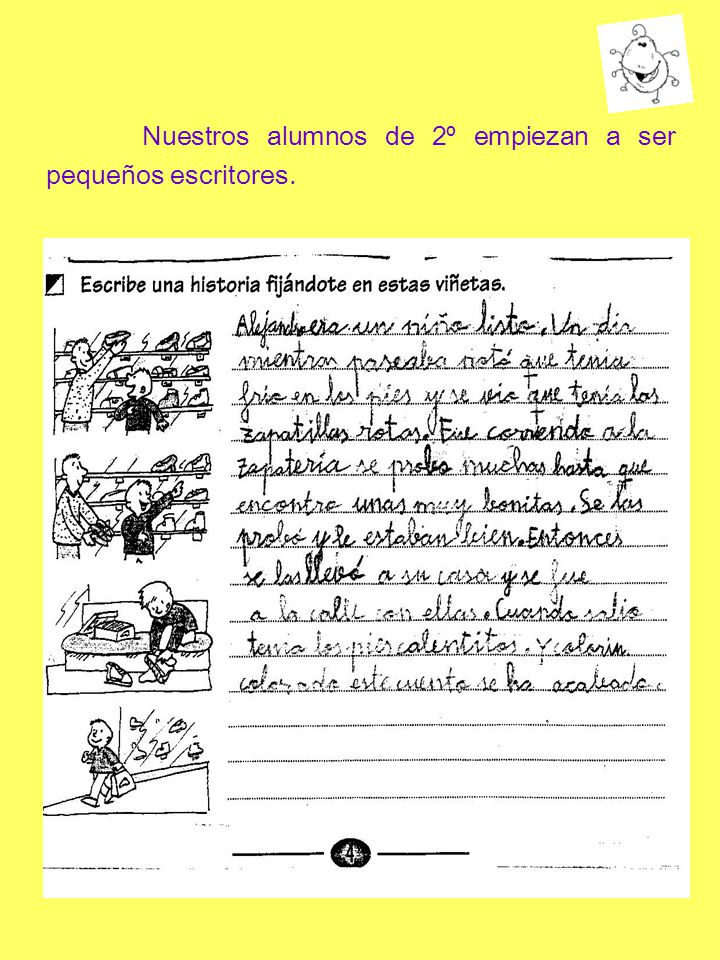 Nuestros alumnos de 2º empiezan a ser
pequeños escritores.
Escribe una historia fijándote en estas viñetas.
Alejandro era un niño listo. Un día
mientras paseaba notó que tenia
frio en los pies y se vio que tenía las
zapatillas rotas. Fue corriendo a la
zapatería se probo muchas hasta que
encontro unas muy bonitas. Se las
probó y le estaban bien. Entonces
se las llevó a su casa y se fue
a la calle con ellas. Cuando salio
tenia los pies calentitos. Y colorin
colorado este cuento se ha acabado.
4